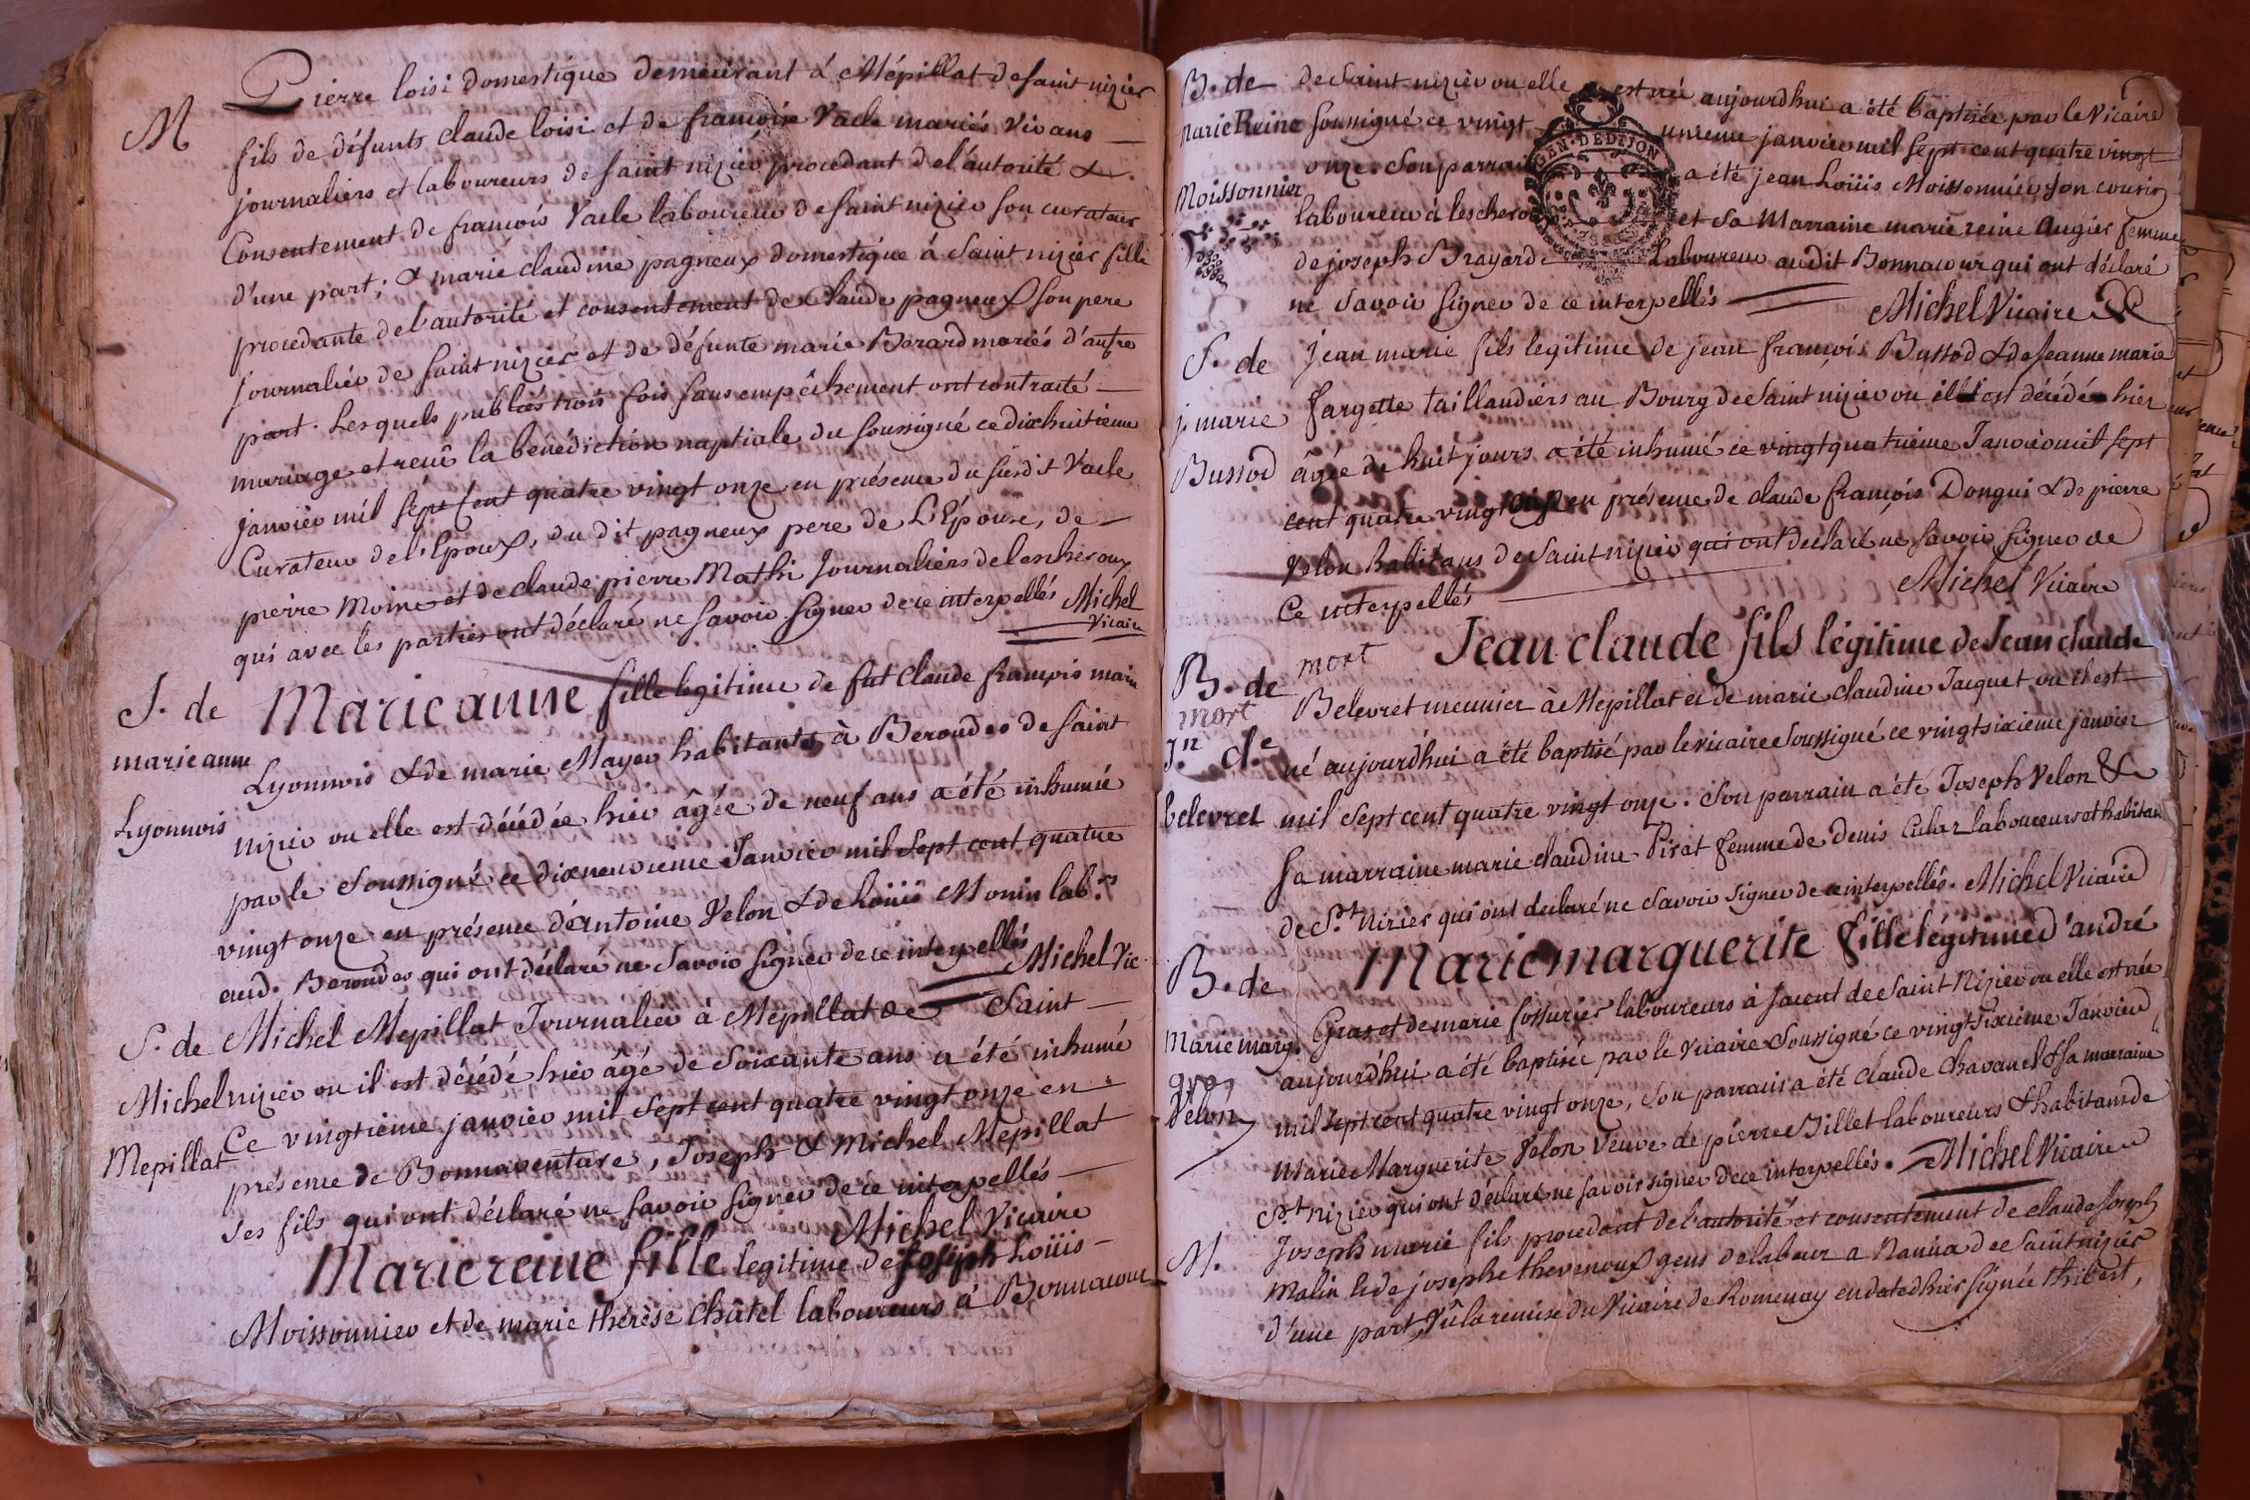 M
Pierre loisi domestique demeurant á Mépillat de saint nizier
fils de défunts claude loisi et de françoise Vacle mariés vivans
journaliers et laboureurs de saint nizier procedant de l'autorité &
Consentement de françois Vacle laboureur de saint nizier son curateur
d'une part; & marie claudine pagneux domestique á Saint nizier fille
procedante de l'autorité et consentement de Claude pagneux son pere
journalier de saint nizier et de défunte marie Berard mariés d'autre
part. Lesquels publiés trois fois sans empêchement ont contracté
mariage et reçu la bénédiction naptiale du soussigné ce dixhuitieme
janvier mil sept cent quatre vingt onze en présence du susdit Vacle
Curateur de l'Epoux, du dit pagneux pere de L'Epouse, de
pierre Moine et de claude pierre Mathi Journaliers de lescheroux
qui avec les parties ont déclaré ne savoir signer de ce interpellés Michel
Vicaire
S. de
marie anne
Lyonnois
Marie anne fille legitime de fut Claude françois marie
Lyonnois & de marie Mayer habitants à Beroudes de saint
nizier ou elle est décédée hier âgée de neuf ans a été inhumée
par le Soussigné ce dixneuvieme Janvier mil sept cent quatre
vingt onze en présence d'Antoine Velon & de Loüis Monin lab.rs
aud. Beroudes qui ont déclaré ne savoir signer de ce interpellés Michel Vic.
S. de
Michel
Mepillat
Michel Mepillat Journalier à Mépillat de Saint
nizier ou il est décédé hier âgé de soixante ans a été inhumé
Ce vingtieme janvier mil sept cent quatre vingt onze en
présence de Bonnaventure, Joseph & Michel Mepillat
ses fils qui ont déclaré ne savoir signer de ce interpellés
Michel Vicaire
Marie reine fille legitime de joseph Loüis
Moissonnier et de marie thérèse Châtel laboureurs á Bonnacour
B. de
Marie Reine
Moissonnier
de Saint nizier ou elle est née aujourd'hui a été baptisée par le Vicaire
soussigné ce vingt unieme janvier mil sept cent quatre vingt
GEN. DE DIJON
onze. Son parrain a été jean Loüis Moissonnier son cousin
laboureur á lescheroux et sa Marraine marie reine Augier femme
de joseph Brayard Laboureur audit Bonnacour qui ont déclaré
ne savoir signer de ce interpellés
Michel Vicaire
S. de
j. marie
Bussod
Jean marie fils legitime de jean françois Bussod & de Jeanne marie
fargette taillandiers au Bourg de Saint nizier ou il est décédé hier
âgée de huit jours a été inhumé ce vingtquatrieme Janvier mil sept
cent quatre vingt onze en présence de claude françois Dongui & de pierre
Velon habitans de Saint nizier qui ont déclaré ne savoir signer de
Ce interpellés
Michel Vicaire
B. de
mort
J.n d.e
belevret
mort
Jean claude fils légitime de Jean claude
Belevret meunier à Mepillat et de marie claudine Jacquet ou il est
né aujourd'hui a été baptisé par le vicaire soussigné ce vingtsixieme janvier
mil sept cent quatre vingt onze. Son parrain a été Joseph Velon &
sa marraine marie claudine Pirat femme de denis Culaz laboureurs et habitan
de S.t Nizier qui ont déclaré ne Savoir signer de ce interpellés. Michel Vicaire
B. de
Marie marg.
gras
Velon
Marie marguerite fille légitime d'andré
Gras et de marie fossurier laboureurs à sacent de Saint Nizier ou elle est née
aujourd'hui a été baptisée par le Vicaire Soussigné ce vingtsixieme Janvier
mil sept cent quatre vingt onze, Son parrain a été claude Chavanel & sa marraine
Marie Marguerite Velon Veuve de pierre Billet laboureurs & habitans de
S.t Nizier qui ont déclaré ne savoir signer de ce interpellés. Michel Vicaire
M.
Joseph marie fils procedant de l'autorité et consentement de claude Joseph
Malin & de josephe thevenoux gens de labeur a Nanüa de Saint nizier
d'une part, Vû la remise du Vicaire de Romenay en date d'hier signée thibert,